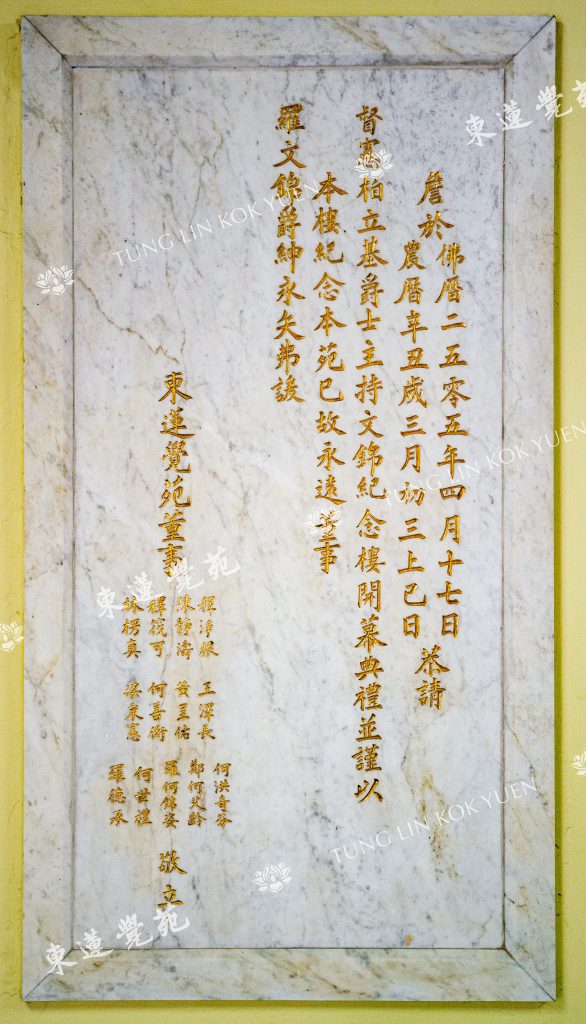 詹於
佛曆二五零五年四月十七日
農曆辛丑歲三月初三上巳日
恭請
督憲柏立基爵士主持文錦紀念樓開幕典禮並謹以
本樓紀念本苑已故永遠董事
羅文錦爵紳永矢弗諼
東蓮覺苑董事
陳靜濤
釋筏可
林楞真
王澤長
何善衡
何洪奇芬
鄭何艾齡
羅何錦姿
何世禮
羅德丞
敬立
東蓮覺苑
TUNG LIN KOK YUEN
TUNG LIN KOK YUEN
東蓮覺苑
TUNG LIN KOK YUEN
東蓮覺苑